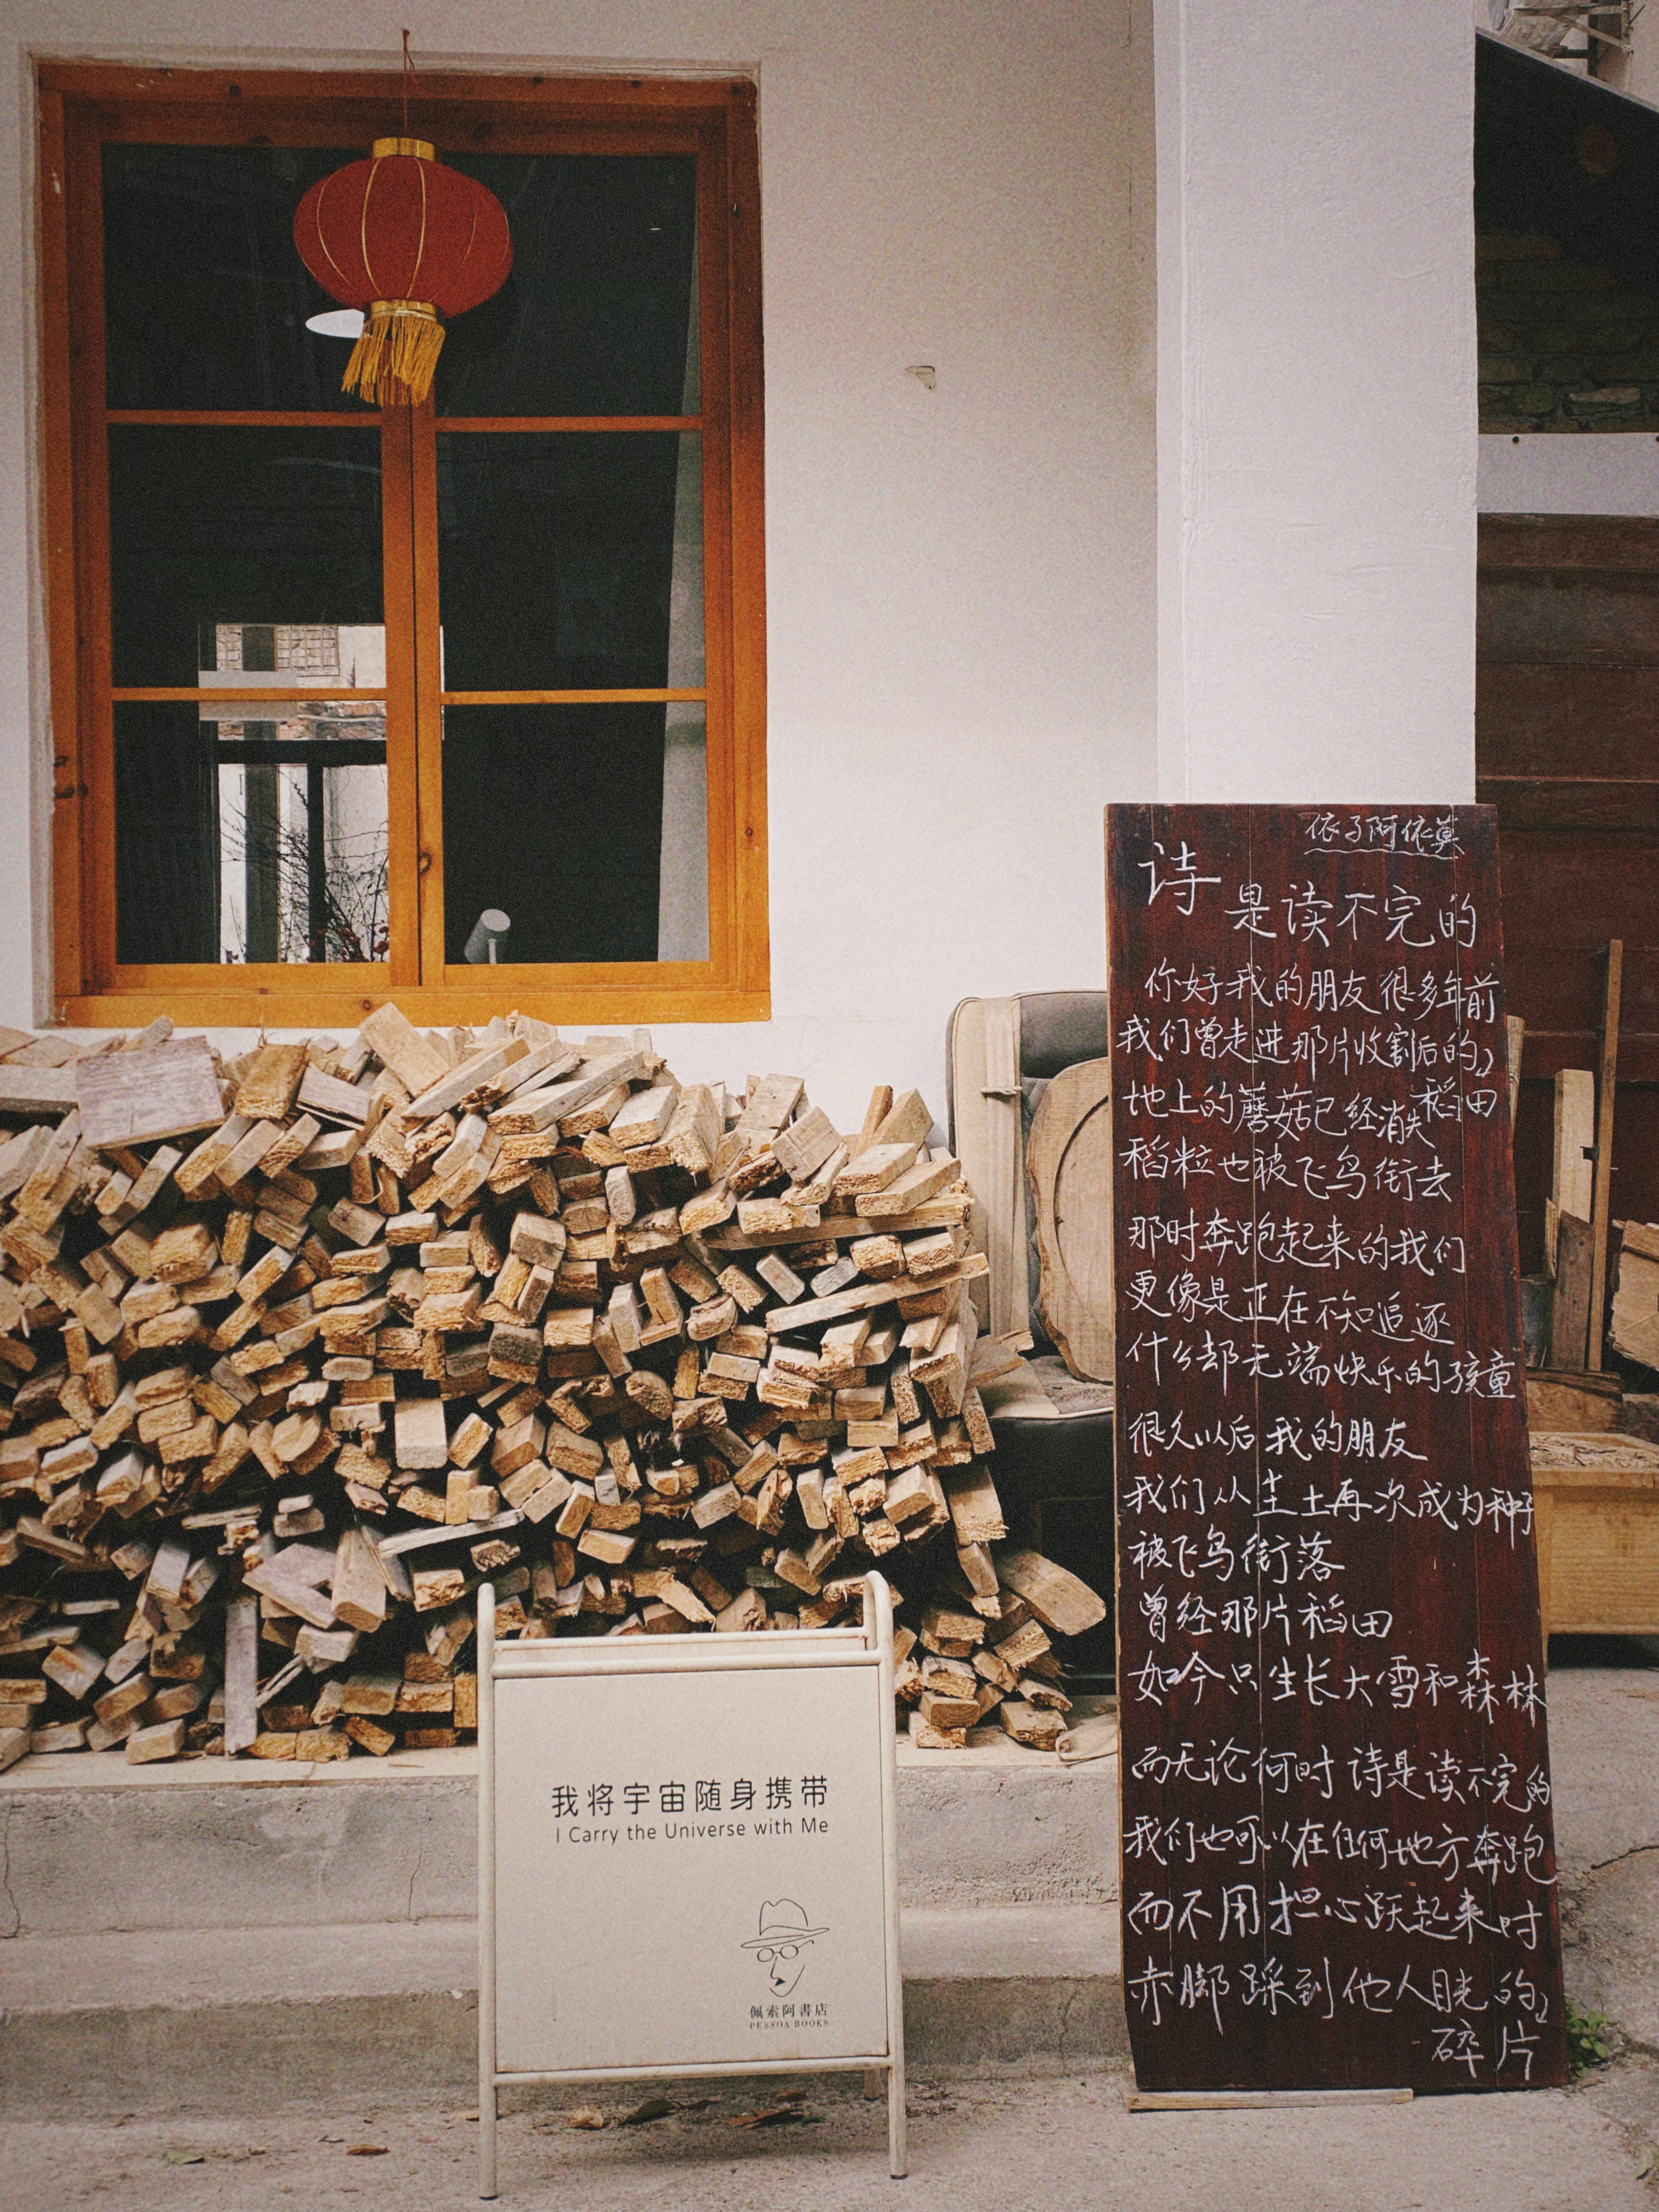 我将宇宙随身携带
I Carry the Universe with Me
佩索阿書店
PESSOA BOOKS
依子阿依莫
诗
是读不完的
你好我的朋友很多年前
我们曾走进那片收割后的
稻田
地上的蘑菇已经消失
稻粒也被飞鸟衔去
那时奔跑起来的我们
更像是正在不知追逐
什么却无端快乐的孩童
很久以后我的朋友
我们从尘土再次成为种子
被飞鸟衔落
曾经那片稻田
如今只生长大雪和森林
而无论何时诗是读不完的
我们也可以在任何地方奔跑
而不用担心跃起来时
赤脚踩到他人目光的
碎片